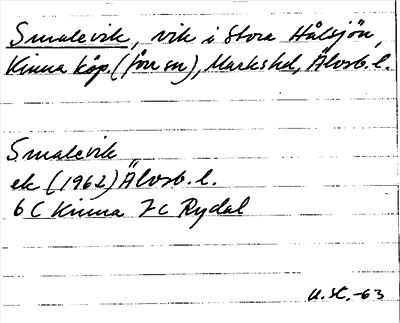 Smalevik, vik i Stora Hålsjön,
Kinna köp. (förr sn), Markshd, Älvsb. l.
Smalevik
ek (1962) Älvsb. l.
6 C Kinna 7 c Rydal
U. St. -63